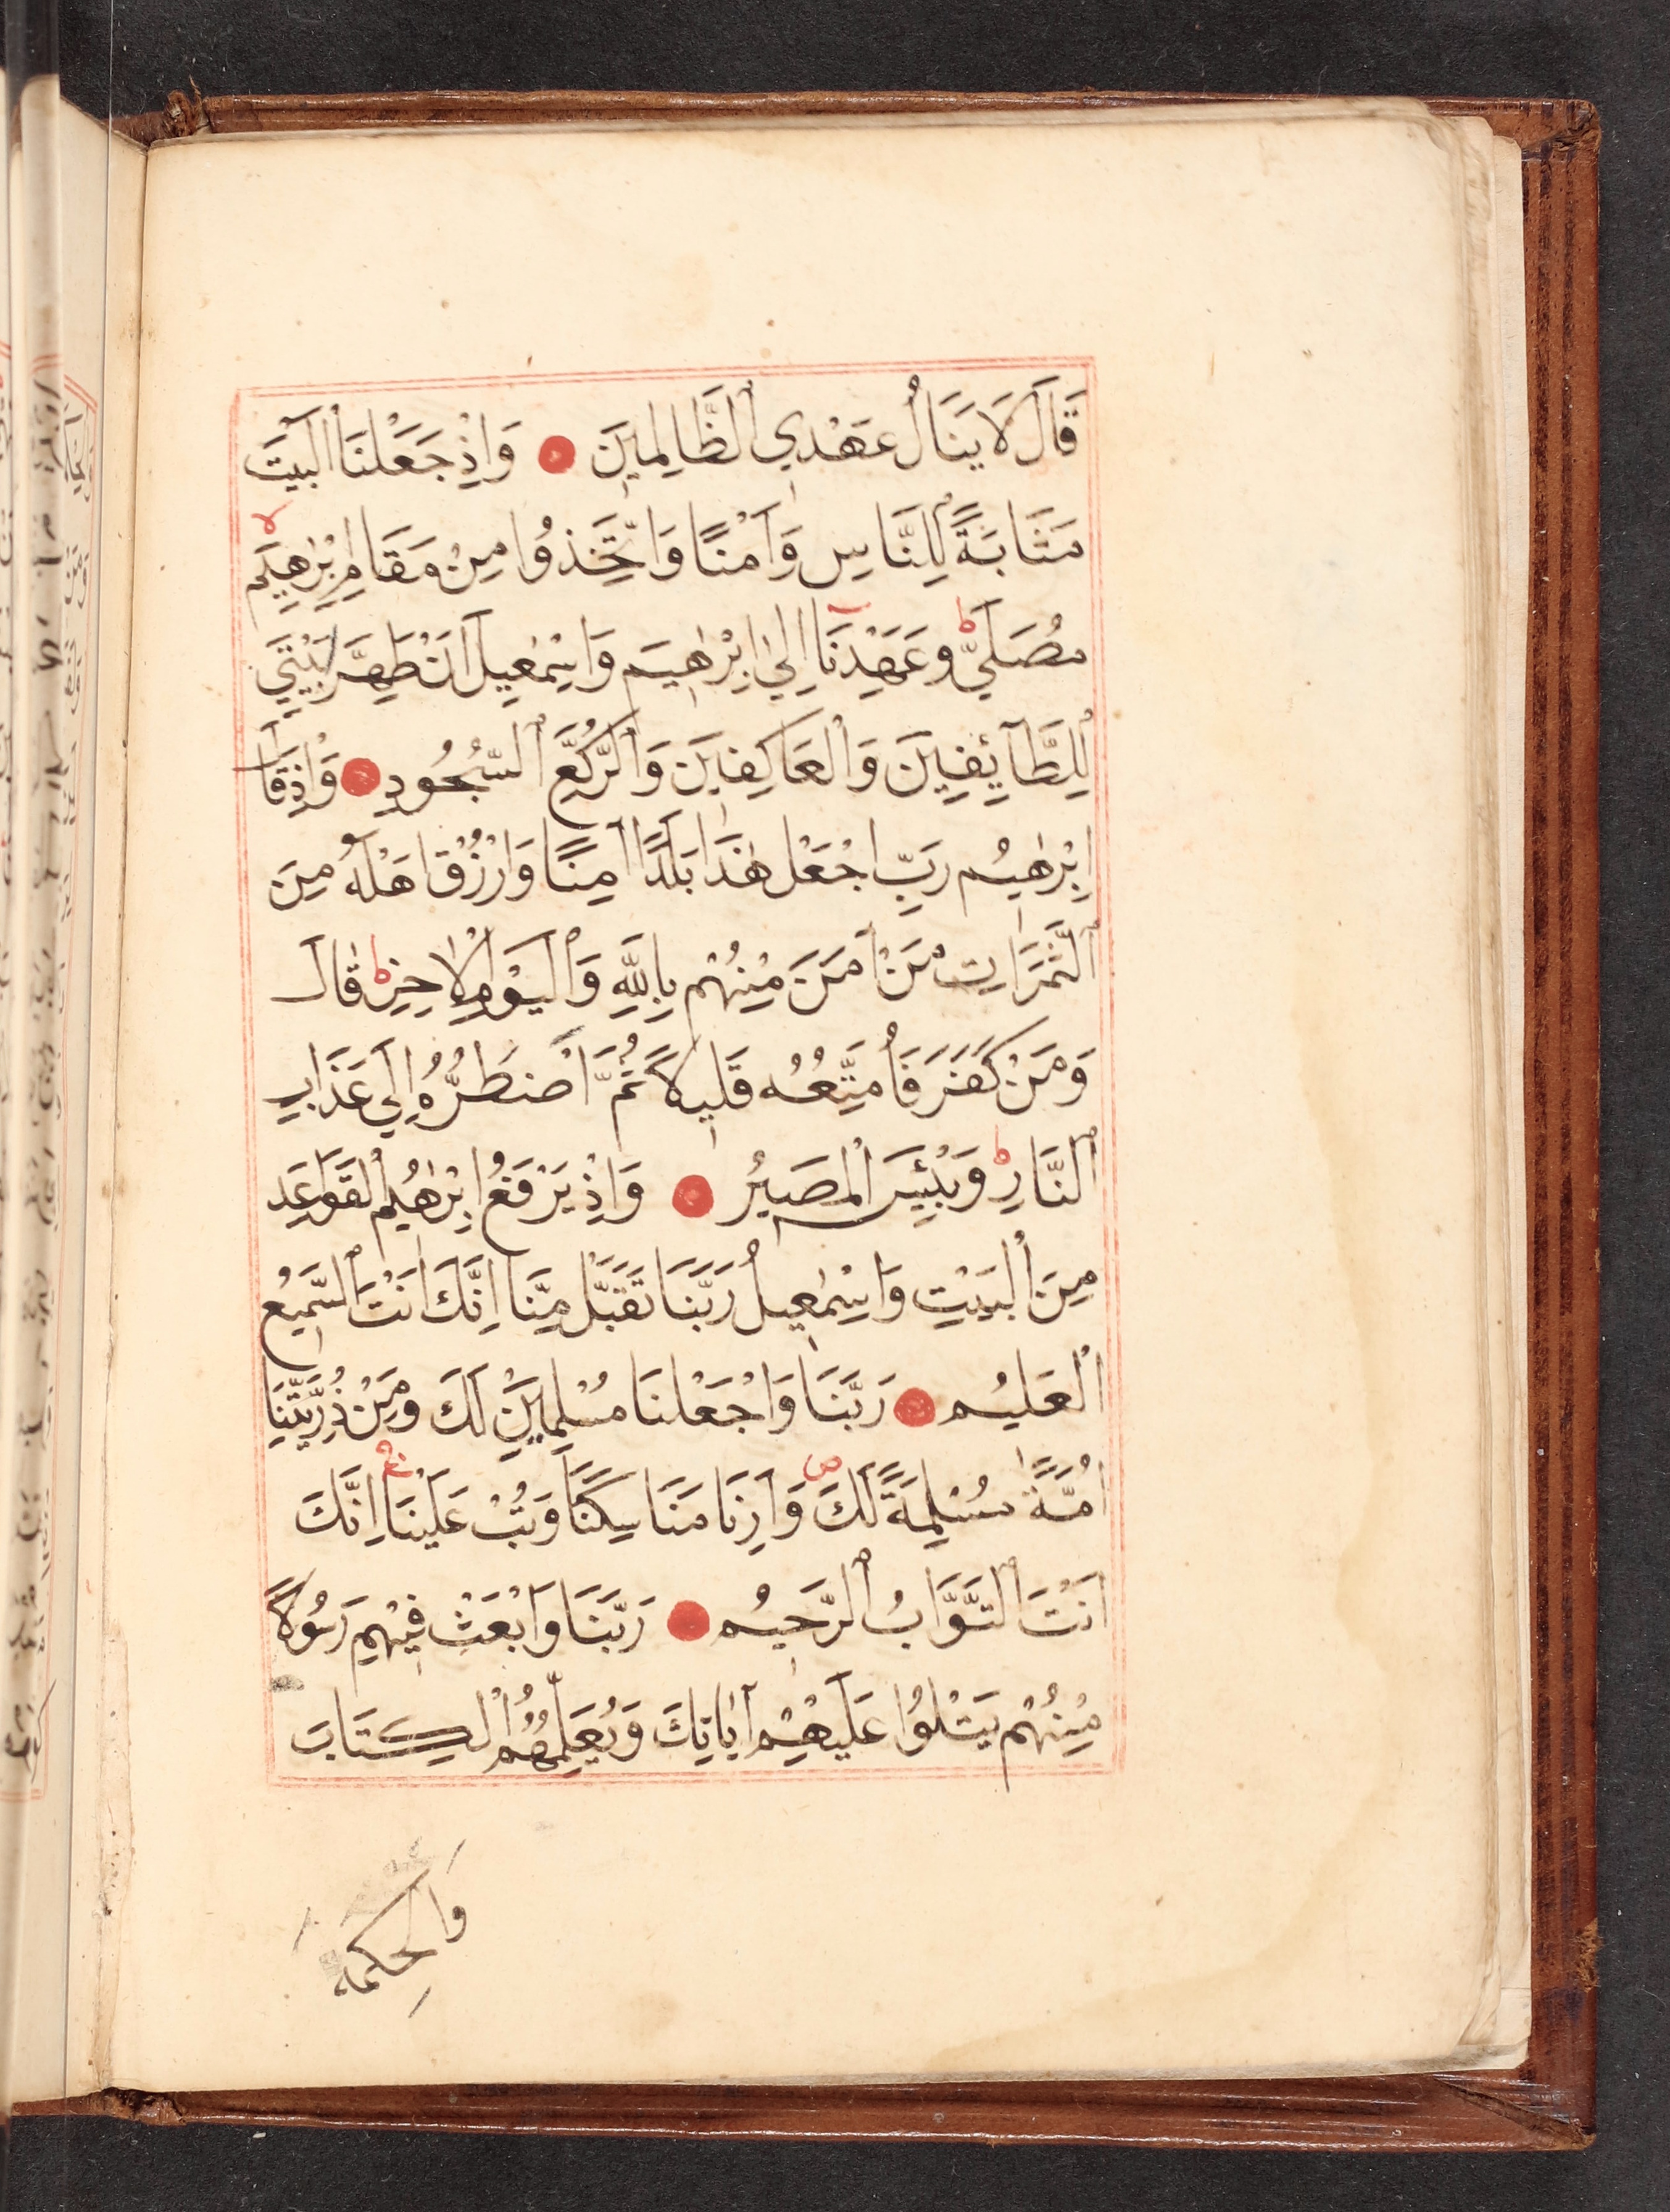 قَالَ لَا يَنَالُ عَهْدِي الظَّالِمِينَ وَاِذْ جَعَلْنَا الْبَيْتَ
مَثَابَةً لِلنَّاسِ وَاَمْنًا وَاتَّخِذُوا مِنْ مَقَامِ اِبْرٰهِيمَ
مُصَلًّي وَعَهِدْنَا اِلٰي اِبْرٰهِيمَ وَاِسْمٰعِيلَ اَنْ طَهِّرَ بَيْتِيَ
لِلطَّآئِفِينَ وَالْعَاكِفِينَ وَالرُّكَّعِ السُّجُودِ وَاِذْ قَالَ
اِبْرٰهِيمُ رَبِّ اجْعَلْ هٰذَا بَلَدًا اٰمِنًا وَارْزُقْ اَهْلَهُ مِنَ
الثَّمَرَاتِ مَنْ اٰمَنَ مِنْهُمْ بِاللّٰهِ وَالْيَوْمِ الْاٰخِرِ قَالَ
وَمَنْ كَفَرَ فَاُمَتِّعُهُ قَلِيلًا ثُمَّ اَضْطَرُّهُ اِلَي عَذَابِ
النَّارِ وَبِئْسَ الْمَصِيرُ وَاِذْ يَرْفَعُ اِبْرٰهِيمُ الْقَوَاعِدَ
مِنَ الْبَيْتِ وَاِسْمٰعِيلُ رَبَّنَا تَقَبَّلْ مِنَّا اِنَّكَ اَنْتَ السَّمِيعُ
الْعَلِيمُ رَبَّنَا وَاجْعَلْنَا مُسْلِمَيْنِ لَكَ وَمِنْ ذُرِّيَّتِنَا
اُمَّةً مُسْلِمَةً لَكَ وَاَرِنَا مَنَاسِكَنَا وَتُبْ عَلَيْنَا اِنَّكَ
اَنْتَ التَّوَّابُ الرَّحِيمُ رَبَّنَا وَابْعَثْ فِيهِمْ رَسُولًا
مِنْهُمْ يَتْلُوا عَلَيْهِمْ اٰيَاتِكَ وَيُعَلِّمُهُمُ الْكِتَابَ
وَالْحِكْمَةَ